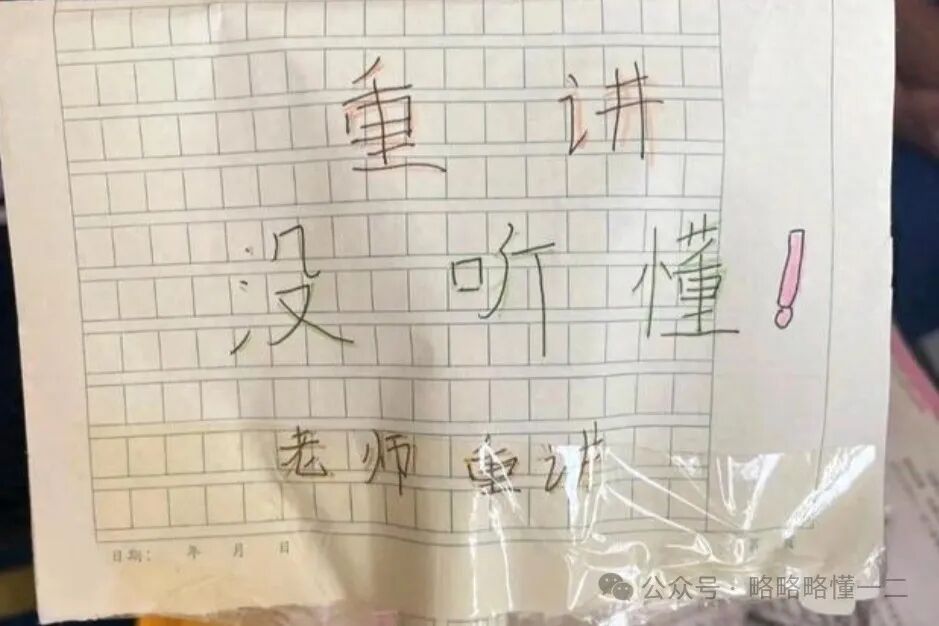 重讲
没听懂！
老师重讲
日期： 年 月 日
公众号·略略略懂一二